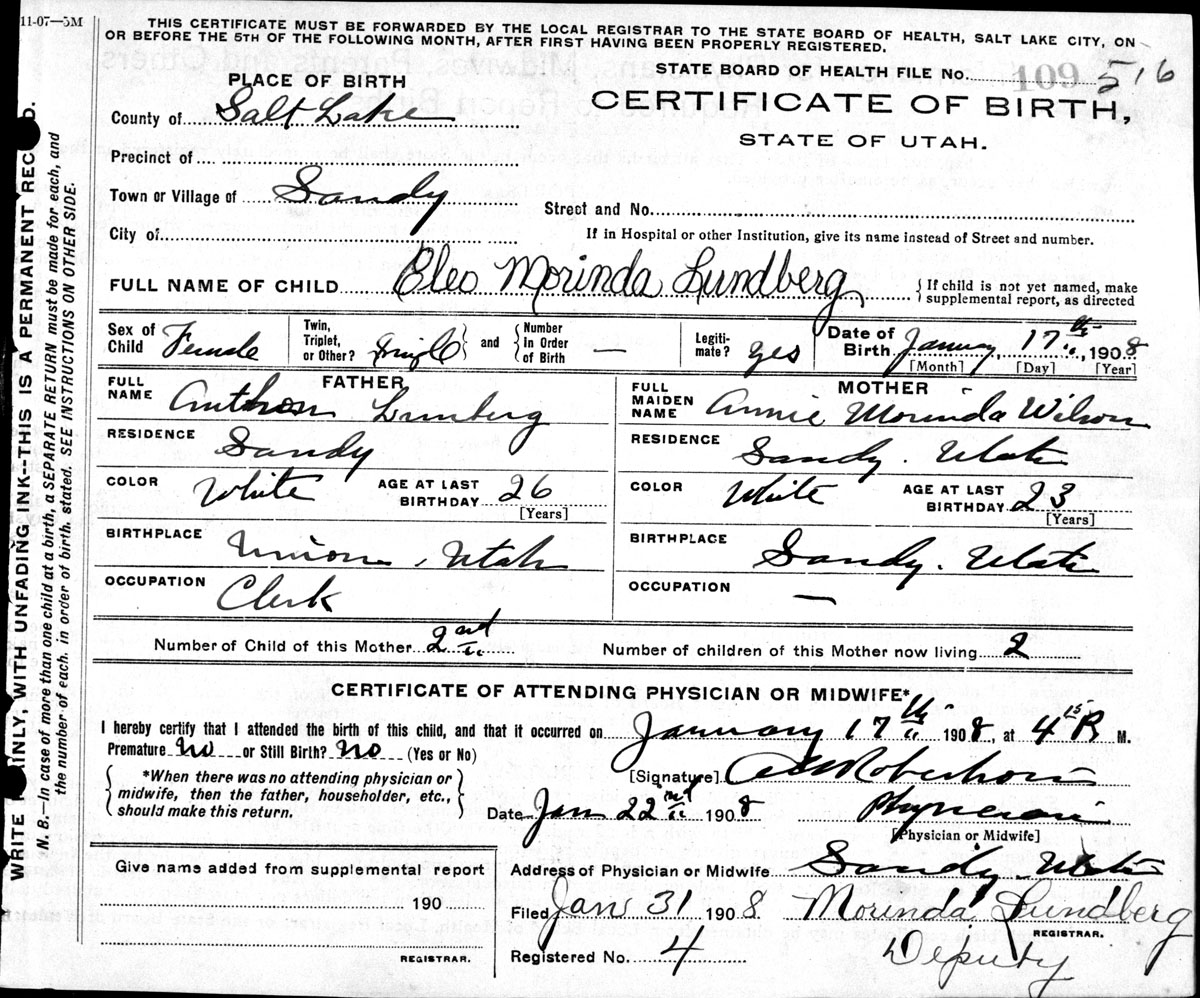 11-07—5M
THIS CERTIFICATE MUST BE FORWARDED BY THE LOCAL REGISTRAR TO THE STATE BOARD OF HEALTH, SALT LAKE CITY, ON
OR BEFORE THE 5TH OF THE FOLLOWING MONTH, AFTER FIRST HAVING BEEN PROPERLY REGISTERED.
STATE BOARD OF HEALTH FILE No. 109 516
PLACE OF BIRTH
CERTIFICATE OF BIRTH,
STATE OF UTAH.
County of Salt Lake
Precinct of
Town or Village of Sandy
Street and No.
City of
If in Hospital or other Institution, give its name instead of Street and number.
FULL NAME OF CHILD Cleo Morinda Lundberg
{If child is not yet named, make
supplemental report, as directed
Sex of Child Female
Twin, Triplet, or Other? Single } and { Number In Order of Birth —
Legitimate? yes
Date of Birth January, 17th, 1908
[Month] [Day] [Year]
FATHER
FULL NAME Lunberg
RESIDENCE Sandy
COLOR White AGE AT LAST BIRTHDAY 26
[Years]
BIRTHPLACE Union, Utah
OCCUPATION Clerk
MOTHER
FULL MAIDEN NAME Annie Morinda Wilson
RESIDENCE Sandy. Utah
COLOR White AGE AT LAST BIRTHDAY 23
[Years]
BIRTHPLACE Sandy. Utah
OCCUPATION —
Number of Child of this Mother 2nd Number of children of this Mother now living 2
CERTIFICATE OF ATTENDING PHYSICIAN OR MIDWIFE*
I hereby certify that I attended the birth of this child, and that it occurred on January 17th 1908, at 4 15 P. M.
Premature No or Still Birth? No (Yes or No)
{*When there was no attending physician or
midwife, then the father, householder, etc.,
should make this return.}
[Signature] Robertson
Date Jan 22nd 1908 Physician
[Physician or Midwife]
Address of Physician or Midwife Sandy. Utah
Give name added from supplemental report
190
REGISTRAR.
Filed Jan 31 1908 Morinda Lundberg
REGISTRAR.
Registered No. 4 Deputy
WRITE PLAINLY, WITH UNFADING INK--THIS IS A PERMANENT RECORD.
N. B.—In case of more than one child at a birth, a SEPARATE RETURN must be made for each, and
the number of each. in order of birth. stated. SEE INSTRUCTIONS ON OTHER SIDE.